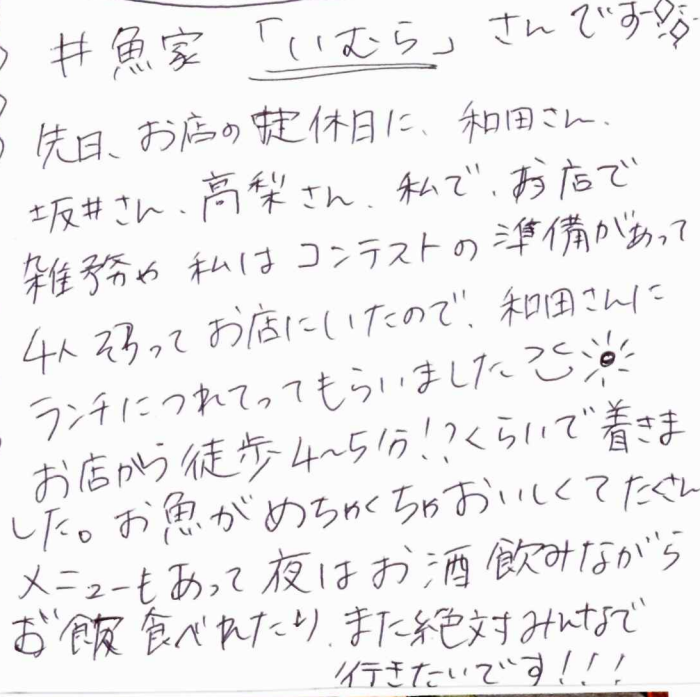 #魚家 「いむら」 さんです
先日、お店の定休日に、和田さん、
坂井さん、高梨さん、私で、お店で
雑務や 私は コンテストの準備があって
4人そろってお店にいたので、和田さんに
ランチにつれてってもらいました
お店から徒歩4~5分!?くらいで着きま
した。お魚がめちゃくちゃおいしくてたくさん
メニューもあって夜はお酒飲みながら
お飯食べれたり、また絶対みんなで
行きたいです!!!